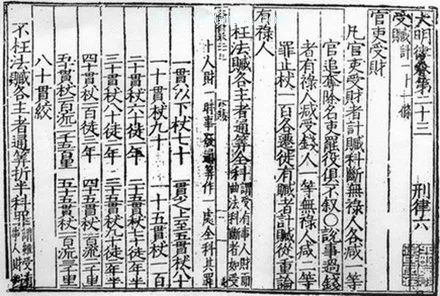 大明律卷第二十三 刑律六
受贓 計一十一條
官吏受財
凡官吏受財者計贓科斷無祿人各減一等
官追奪除名吏罷役俱不敘○說事過錢
者有祿人減受錢人一等無祿人減二等
罪止杖一百各遷徙有贓者計贓從重論
有祿人
枉法贓各主者通算全科 謂受有事人財而曲法科斷者如受
十人財一時事發通算作一處全科其罪
一貫以下杖七十 一貫之上至五貫杖八十
一十貫杖九十 一十五貫杖一百
二十貫杖六十徒一年 二十五貫杖七十徒一年半
三十貫杖八十徒二年 三十五貫杖九十徒二年半
四十貫杖一百徒三年 四十五貫杖一百流二千里
五十貫杖一百流二千五百里 五十五貫杖一百流三千里
八十貫絞
不枉法贓各主者通算折半科罪 謂雖受有事人財